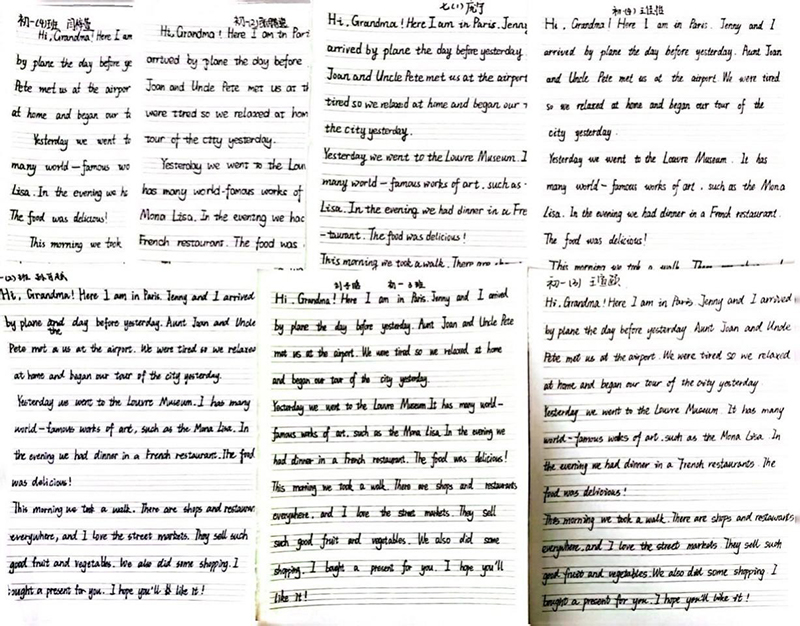 初一
Hi, Grandma! Here I am
by plane the day before ye
Pete met us at the airpor
at home and began our t
Yesterday we went to
many world-famous wo
Lisa. In the evening we h
The food was delicious!
This morning we took
初一(2)
Hi, Grandma! Here I am in Pari
arrived by plane the day before
Joan and Uncle Pete met us at th
were tired so we relaxed at hom
tour of the city yesterday.
Yesterday we went to the Lou
has many world-famous works of
Mona Lisa. In the evening we had
French restaurant. The food was
七(1)
Hi, Grandma! Here I am in Paris. Jenny
arrived by plane the day before yesterday.
Joan and Uncle Pete met us at the airport
tired so we relaxed at home and began our
the city yesterday.
Yesterday we went to the Louvre Museum. I
many world-famous works of art, such as
Lisa. In the evening we had dinner in a Fre
-taurant. The food was delicious!
This morning we took a walk. There are shop
初一
Hi, Grandma! Here I am in Paris. Jenny and I
arrived by plane the day before yesterday. Aunt Joan
and Uncle Pete met us at the airport We were tired
so we relaxed at home and began our tour of the
city yesterday.
Yesterday we went to the Louvre Museum. It has
many world-famous works of art, such as the Mona
Lisa. In the evening we had dinner in a French restaurant.
The food was delicious!
This morning we took a walk. There
班
Hi, Grandma! Here I am in Paris. Jenny and I arrived
by plane the day before yesterday. Aunt Joan and Uncle
Pete met us at the airport. We were tired so we relaxed
at home and began our tour of the city yesterday.
Yesterday we went to the Louvre Museum. I has many
world-famous works of art, such as the Mona Lisa. In
the evening we had dinner in a French restaurant. The food
was delicious!
This morning we took a walk. There are shops and restauran
everywhere, and I love the street markets. They sell such
good fruit and vegetables. We also did some shopping. I
bought a present for you. I hope you'll like it!
初一
Hi, Grandma! Here I am in Paris. Jenny and I arrived
by plane the day before yesterday. Aunt Joan and Uncle Pete
met us at the airport. We were tired so we relaxed at home
and began our tour of the city yesterday.
Yesterday we went to the Louvre Museum It has many world-
famous works of art, such as the Mona Lisa. In the evening we
had dinner in a French restaurant. The food was delicious!
This morning we took a walk. There are shops and restaurants
everywhere, and I love the street markets. They sell
such good fruit and vegetables. We also did some
shopping. I bought a present for you. I hope you'll
like it!
初一(3)
Hi, Grandma! Here I am in Paris Jenny and I arrived
by plane the day before yesterday Aunt Joan and Uncle
Pete met us at the airport. We were tired so we relaxed
at home and began our tour of the city yesterday
Yesterday we went to the Louvre Museum. It has many
world-famous works of art. such as the Mona Lisa. In
the evening we had dinner in a French restaurants. The
food was delicious!
This morning we took a walk. There are shops and restaurants
everywhere, and I love the street markets They sell such
good fruit and vegetables. We also did some shopping. I
bought a present for you. I hope you'll like it!